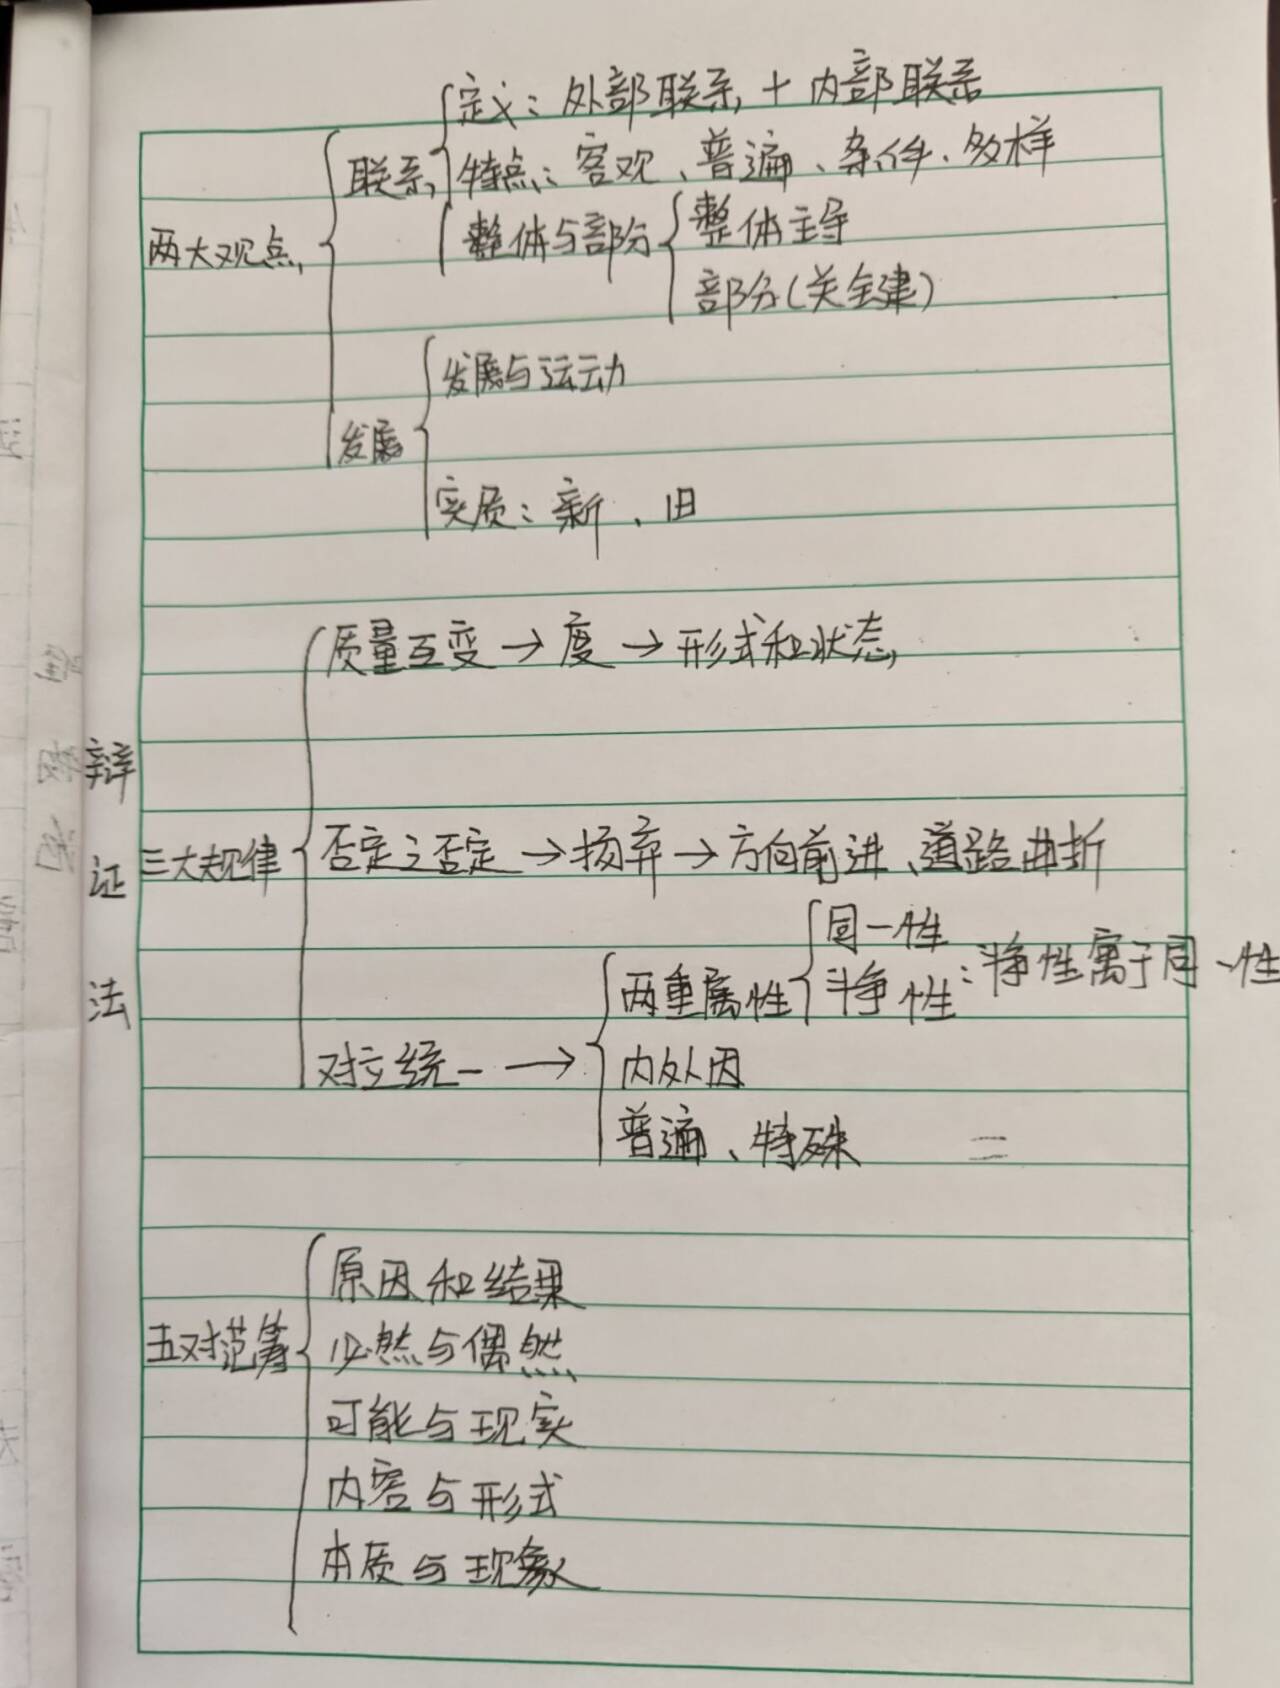 定义：外部联系＋内部联系
联系
特点：客观、普遍、条件、多样
两大观点
整体与部分
整体主导
部分(关键)
发展与运动
发展
实质：新、旧
质量互变→度→形式和状态
辩证法
三大规律
否定之否定→扬弃→方向前进、道路曲折
同一性
两重属性
斗争性：斗争性寓于同一性
对立统一→
内外因
普遍、特殊
原因和结果
五对范筹
必然与偶然
可能与现实
内容与形式
本质与现象